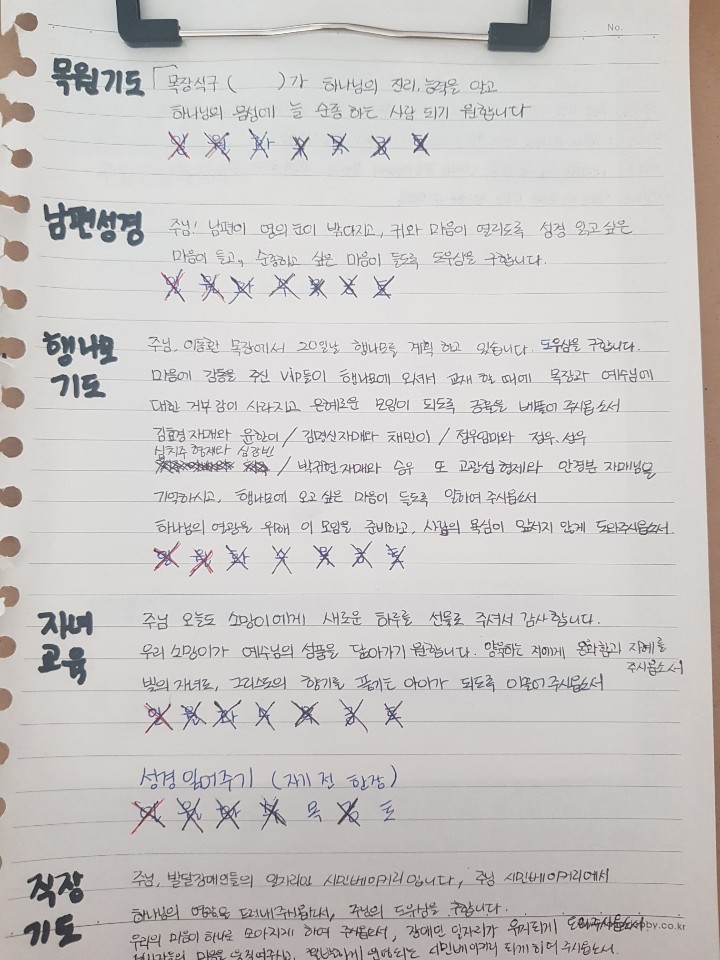 No.
목원기도 「목장식구 ( )가 하나님의 진리, 능력을 알고
하나님의 음성에 늘 순종 하는 사람 되기 원합니다
일 월 화 수 목 금 토
남편성경 주님! 남편이 영의 눈이 밝아지고, 귀와 마음이 열리도록 성경 읽고 싶은
마음이 들고, 순종하고 싶은 마음이 들도록 도우심을 구합니다.
일 월 화 수 목 금 토
행나모 기도 주님, 이동환 목장에서 20일날 행나모를 계획 하고 있습니다. 도우심을 구합니다.
마음에 감동을 주신 VIP들이 행나모에 오셔서 교제 할 때에 목장과 예수님에
대한 거부감이 사라지고 은혜로운 모임이 되도록 긍휼을 베풀어 주시옵소서
김효경자매와 윤한이 / 김명신자매와 채민이 / 정우엄마와 정우, 선우
심치주 형제와 심강빈
/ 박귀현자매와 승유 또 고광섭형제와 안경분 자매님을
기억하시고, 행나모에 오고 싶은 마음이 들도록 일하여 주시옵소서
하나님의 영광을 위해 이 모임을 준비하고, 사람의 욕심이 앞서지 않게 도와주시옵소서.
일 월 화 수 목 금 토
자녀 교육 주님 오늘도 소망이에게 새로운 하루를 선물로 주셔서 감사합니다.
우리 소망이가 예수님의 성품을 닮아가기 원합니다. 양육하는 저에게 온화함과 지혜를
주시옵소서
빛의 자녀로, 그리스도의 향기를 풍기는 아이가 되도록 이끌어 주시옵소서
일 월 화 수 목 금 토
성경 읽어주기 (자기 전 한장)
일 월 화 수 목 금 토
직장 기도 주님, 발달장애인들의 일자리인 시민베이커리 입니다, 주님 시민베이커리에서
하나님의 영광을 드러내 주시옵소서, 주님의 도우심을 구합니다.
우리의 마음이 하나로 모아지게 하여 주시옵소서, 장애인 일자리가 유지되게 도와주시옵소서
마음을 움직여주시고, 시민베이커리 되게 하여 주시옵소서.